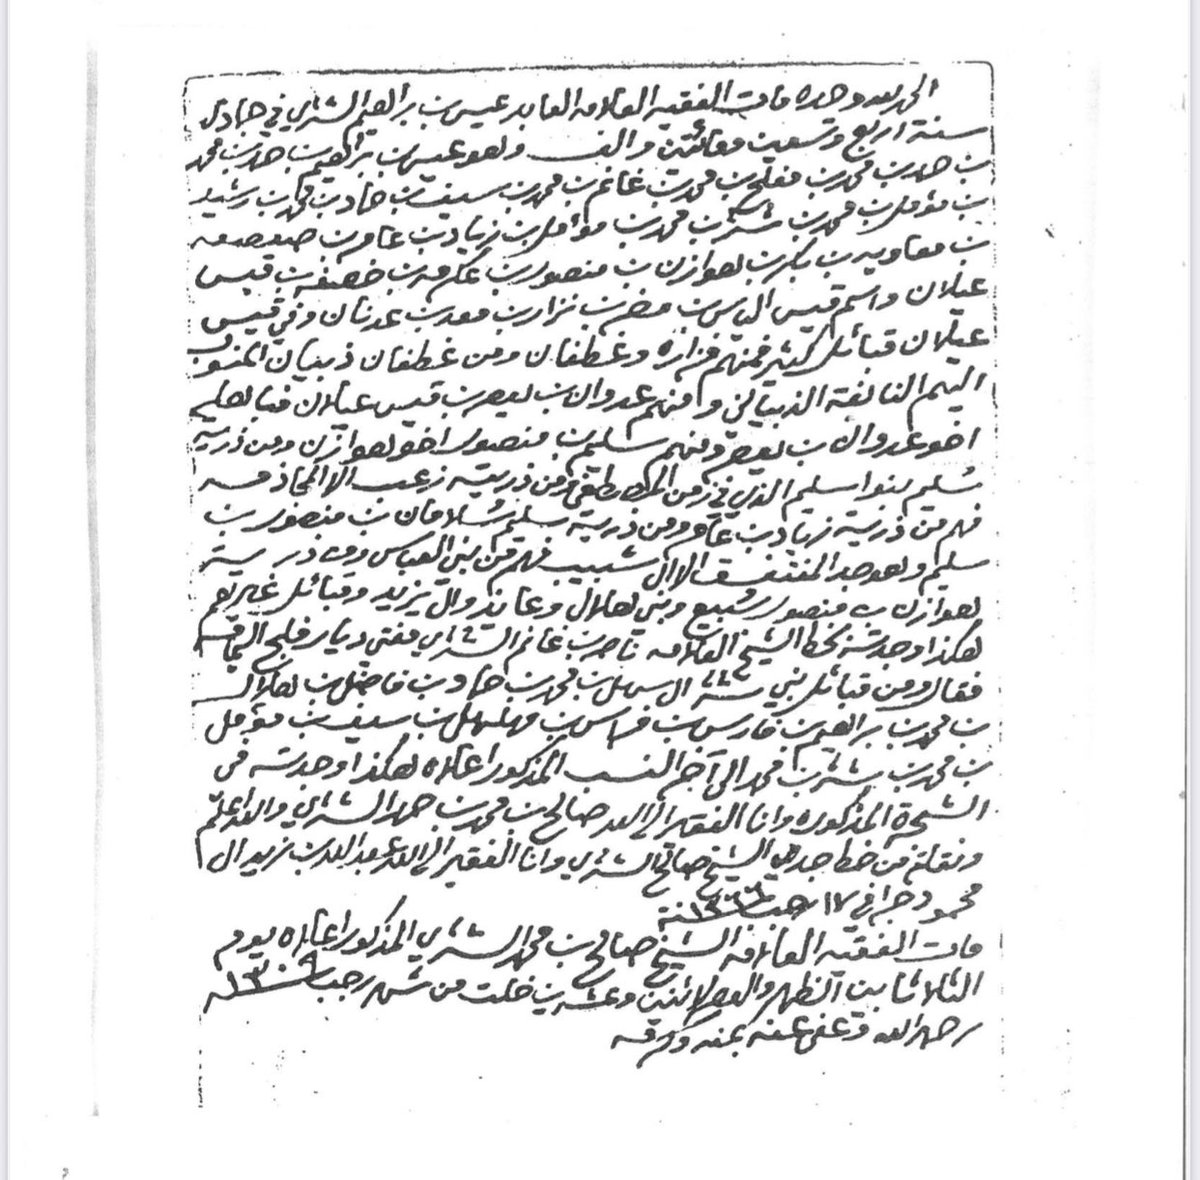 الحمد لله وحده مات الفقيه العلامه العابد عيسى بن براهيم الشثري في جمادى
سنة اربع وتسعين ومائتين والف وهو عيسى بن براهيم بن حمد بن محمد
بن حمد بن محمد بن مفلح بن محمد بن غانم بن محمد بن سيف بن حماد بن محمد بن رشيد
بن مؤمل بن محمد بن شثر بن محمد بن مؤمل بن زياد بن عامر بن صعصعه
بن معاويه بن بكر بن هوازن بن منصور بن عكرمه بن خصفه بن قيس
عيلان واسم قيس الياس بن مضر بن نزار بن معد بن عدنان وفي قيس
عيلان قبائل كثير فمنهم فزاره وغطفان ومن غطفان ذبيان المنسوب
اليهم النابغة الذبياني ومنهم عدوان بن يعصر بن قيس عيلان فباهله
اخو عدوان بن يعصر ومنهم سليم بن منصور اخو هوازن ومن ذرية
سُليم بنوا سليم الذي في زمن من ذريته زعب الا
فهم من ذرية زياد بن عامر ومن ذرية سليم سُلامان بن منصور بن
سليم وهو جد المنتفق الا ال شبيب فهم من بني العباس ومن ذرية
هوازن بن منصور سُبيع وبني هلال وعائذ وال يزيد وقبائل غيرهم
هكذا وجدته بخط الشيخ العلامه ناصر بن غانم الشثري مفتي ديار فلج
فقال ومن قبائل بني شثر ال بن محمد بن حماد بن فاضل بن هلال
بن محمد بن براهيم بن فارس بن فراس بن مهلهل بن سيف بن مؤمل
بن محمد بن شثر بن محمد الى آخر النسب المذكور اعلاه هكذا وجدته في
الشجرة المذكوره وانا الفقير الى الله صالح بن محمد بن حمد الشثري والله اعلم
ونقلته من خط جدي الشيخ صالح الشثري وانا الفقير الى الله عبد الله بن زيد ال
محمود حرر في ١٧ رجب سنة
مات الفقيه العلامه الشيخ صالح بن محمد الشثري المذكور اعلاه يوم
الثلاثا بين الظهر والعصر لاثنين وعشرين خلت من شهر رجب سنة ١٣٠٩
رحمه الله وعفى عنه بمنه وكرمه